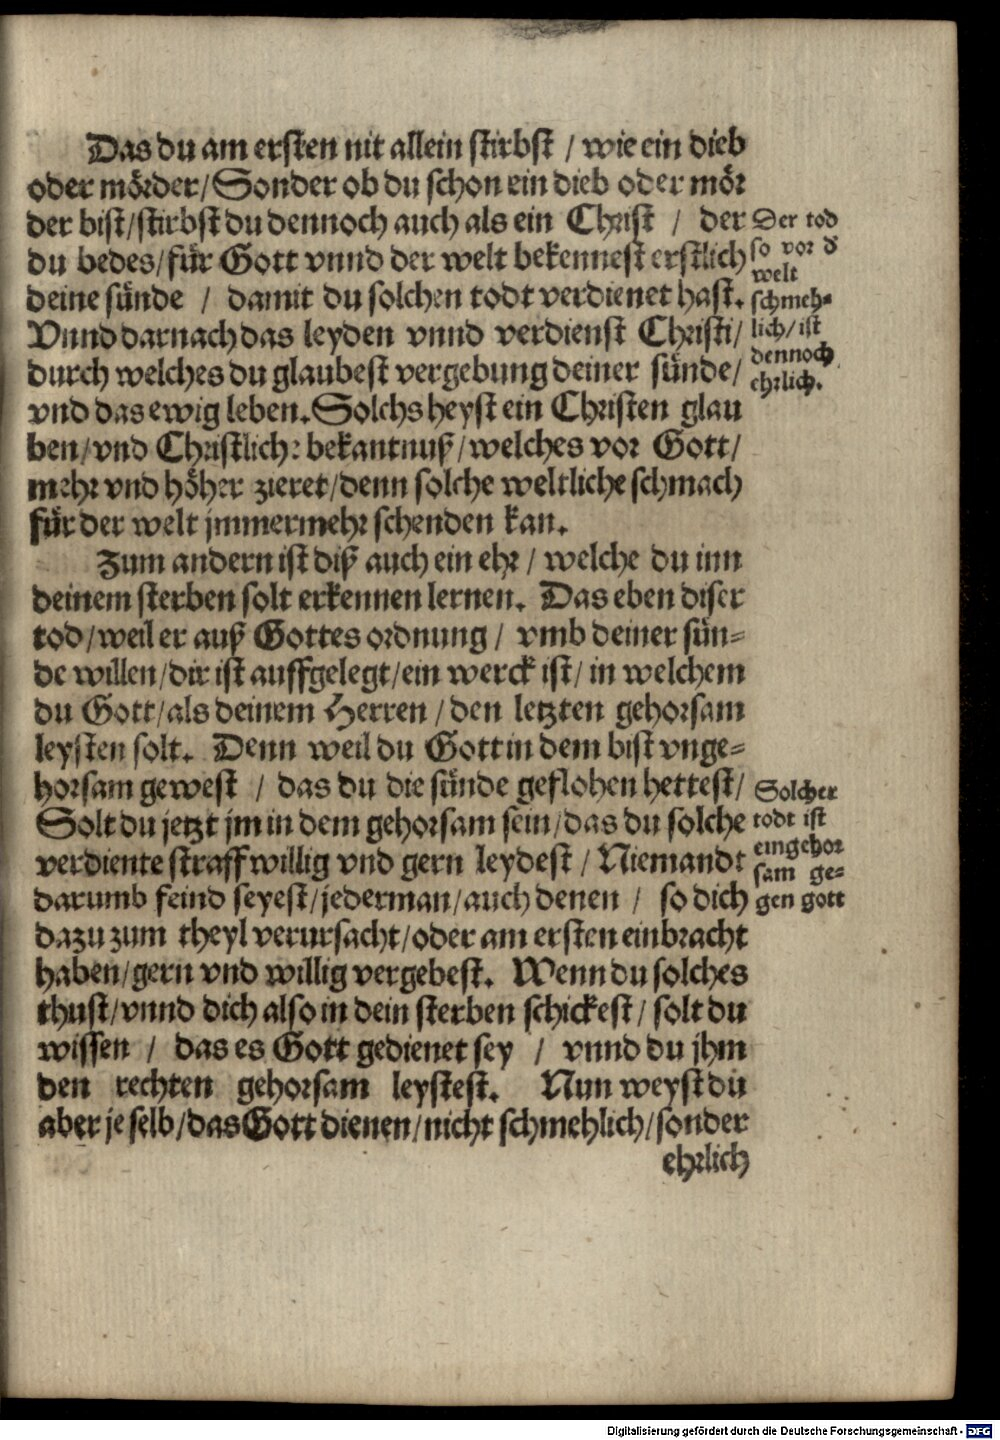 Das du am ersten nit allein stirbst / wie ein dieb
oder mörder/Sonder ob du schon ein dieb oder mör
der bist/stirbst du dennoch auch als ein Christ / der
du bedes/für Gott vnnd der welt bekennest erstlich
deine sünde / damit du solchen todt verdienet hast.
Vnnd darnach das leyden vnnd verdienst Christi/
durch welches du glaubest vergebung deiner sünde/
vnd das ewig leben. Solchs heyst ein Christen glau
ben/vnd Christliche bekantnuß/welches vor Gott/
mehr vnd höher zieret/denn solche weltliche schmach
für der welt jmmermehr schenden kan.
Der tod
so vor d
welt
schmeh-
lich/ist
dennoch
ehrlich.
Zum andern ist diß auch ein ehr / welche du inn
deinem sterben solt erkennen lernen. Das eben diser
tod/weil er auß Gottes ordnung / vmb deiner sün-
de willen/dir ist auffgelegt/ein werck ist/in welchem
du Gott/als deinem Herren/den letzten gehorsam
leysten solt. Denn weil du Gott in dem bist vnge-
horsam gewest / das du die sünde geflohen hettest/
Solt du jetzt jm in dem gehorsam sein/das du solche
verdiente straff willig vnd gern leydest / Niemandt
darumb feind seyest/jederman/auch denen / so dich
dazu zum theyl verursacht/oder am ersten einbracht
haben/gern vnd willig vergebest. Wenn du solches
thust/vnnd dich also in dein sterben schickest/solt du
wissen / das es Gott gedienet sey / vnnd du jhm
den rechten gehorsam leystest. Nun weyst du
aber je selb/das Gott dienen/nicht schmehlich/sonder
ehrlich
Solcher
todt ist
eingehor
sam ge-
gen gott
Digitalisierung gefördert durch die Deutsche Forschungsgemeinschaft - DFG